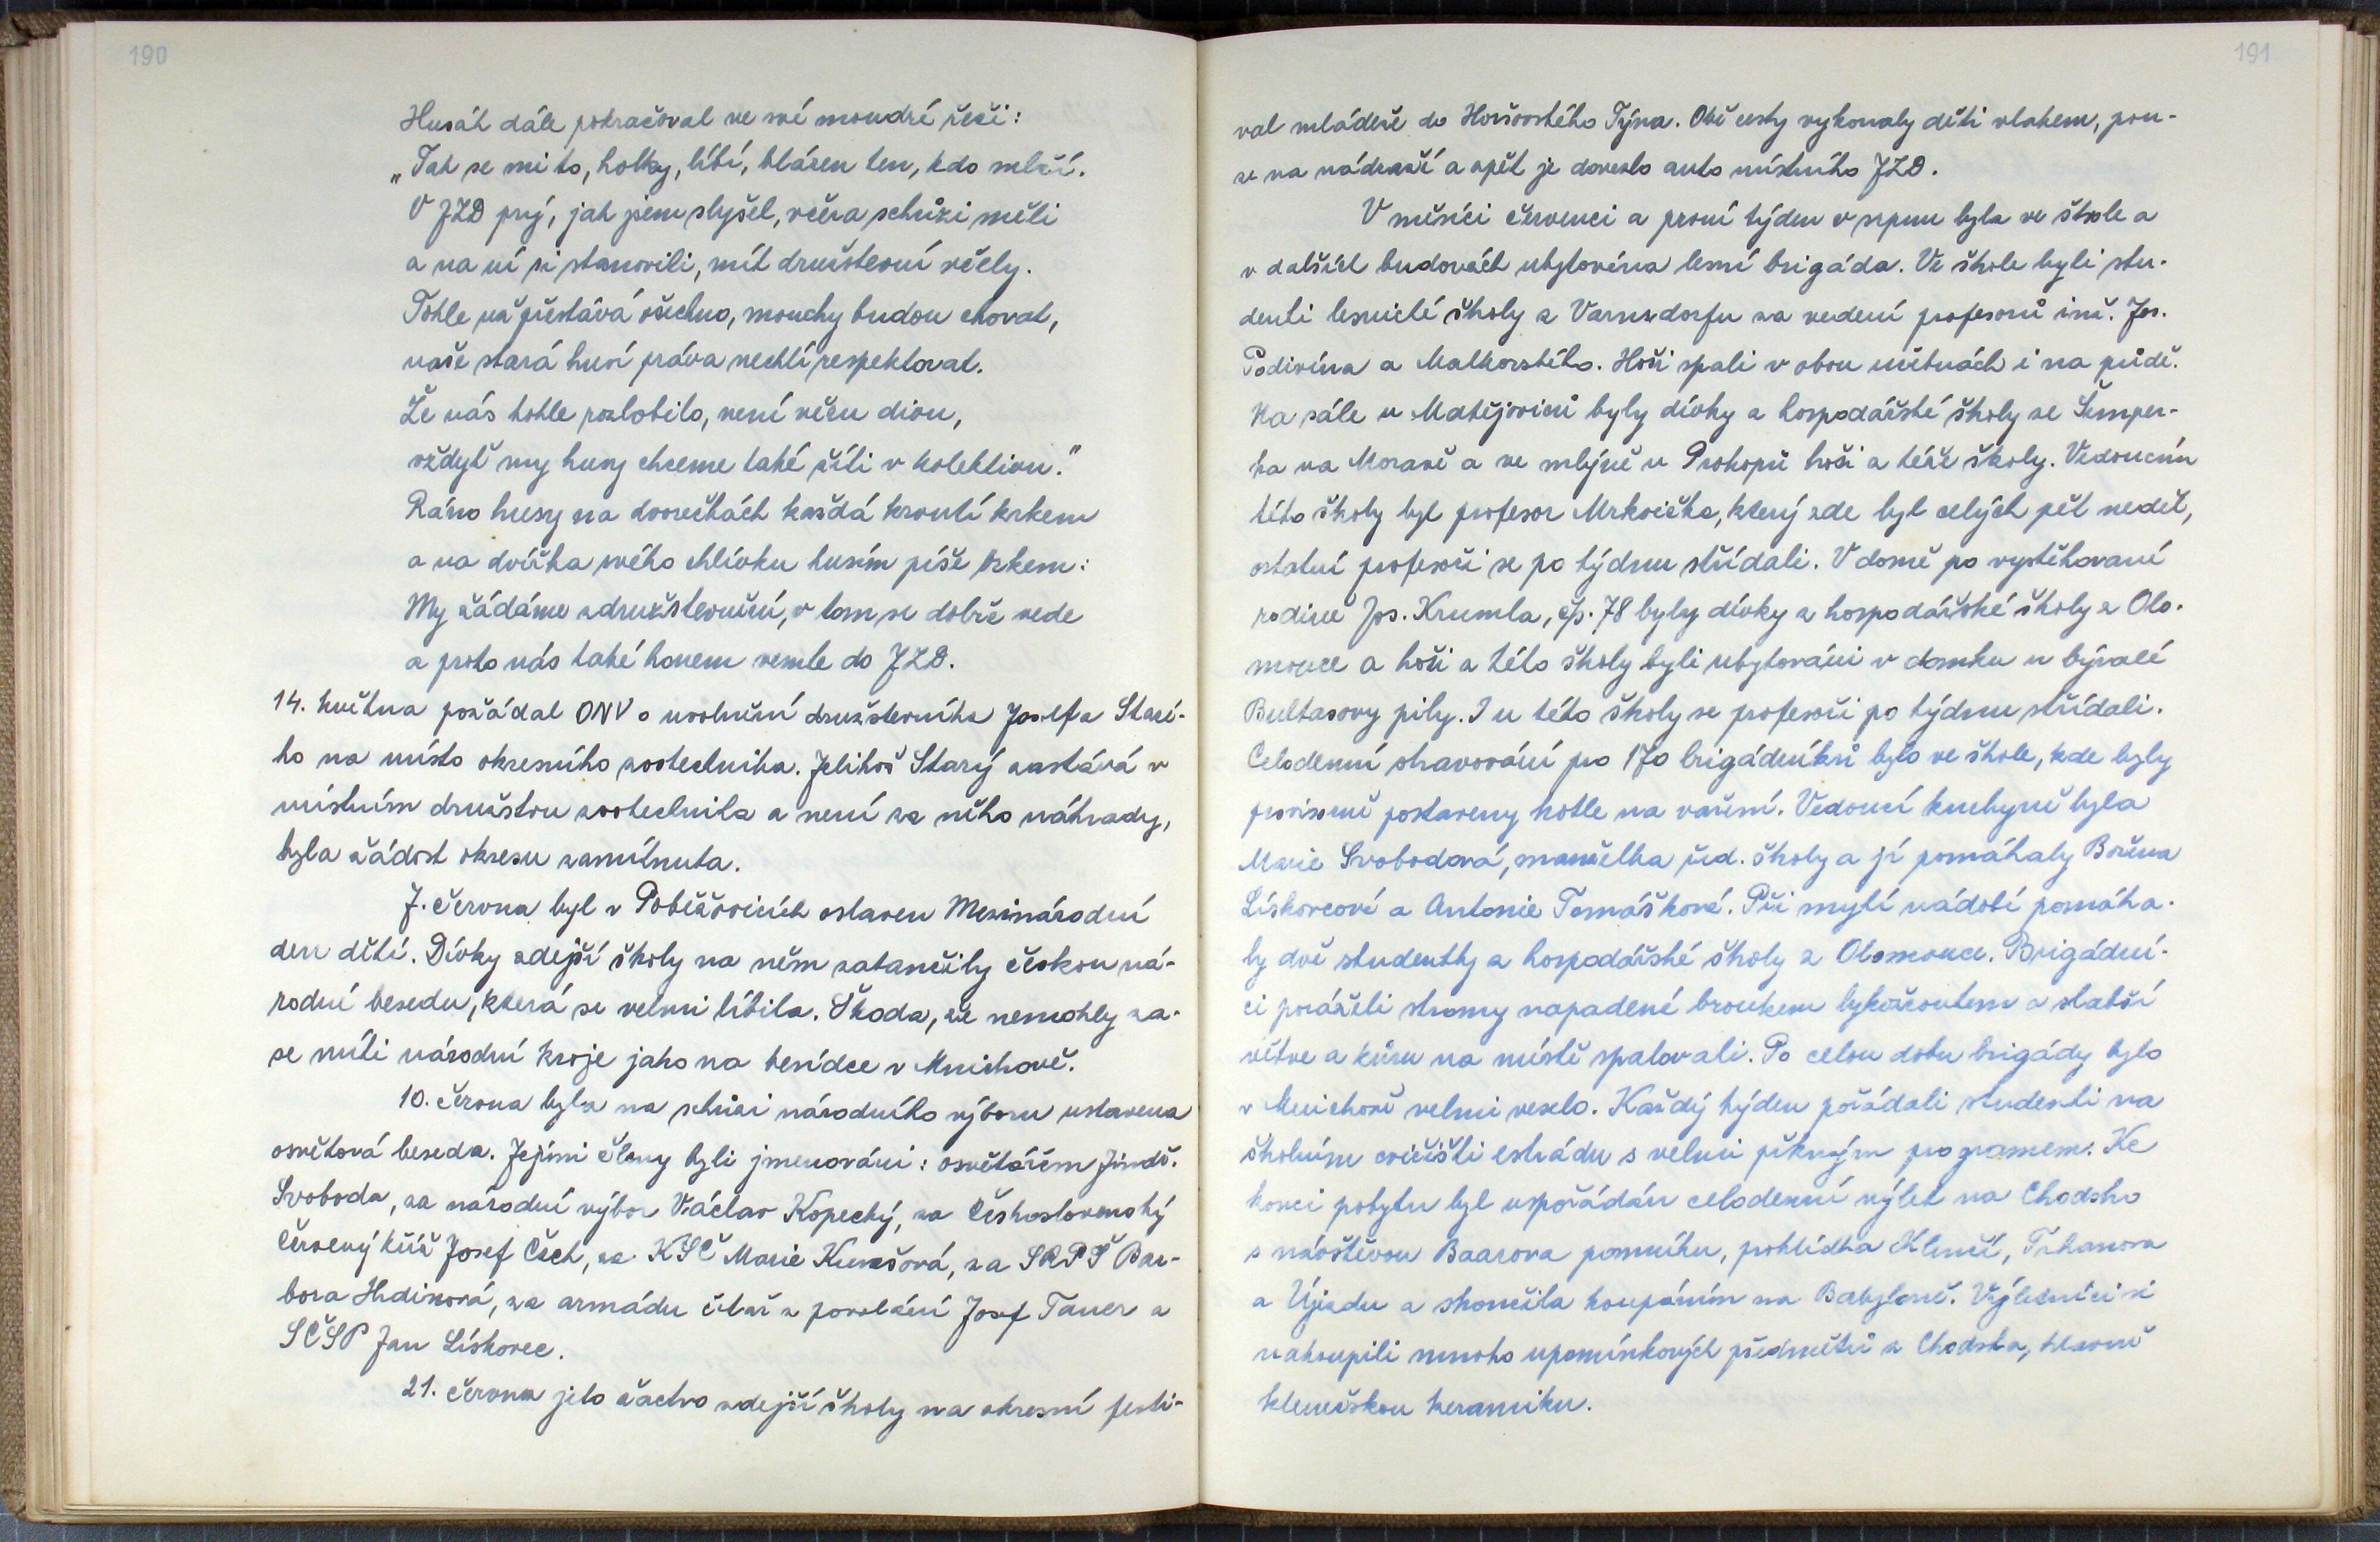 190
Husák dále pokračoval ve své moudré řeči:
„Tak se mi to, holky, líbí, blázen ten, kdo mlčí.
V JZD prý, jak jsem slyšel, včera schůzi měli
a na ní si stanovili, mít družstevní včely.
Tohle už přestává všechno, mouchy budou chovat,
naše stará husí práva nechtí respektovat.
Že nás tohle rozlobilo, není věru divu,
vždyť my husy chceme také žíti v kolektivu."
Ráno husy na dvorečkách každá kroutí krkem
a na dvířka svého chlívku husím píše brkem:
My žádáme združstevnění, v tom se dobře vede
a proto nás také honem vemte do JZD.
14. května požádal ONV o uvolnění družstevníka Josefa Staré-
ho na místo okresního zootechnika. Jelikož Starý zastává v
místním družstvu zootechnika a není za něho náhrady,
byla žádost okresu zamítnuta.
7. června byl v Poběžovicích oslaven Mezinárodní
den dětí. Dívky zdejší školy na něm zatančily českou ná-
rodní besedu, která se velmi líbila. Škoda, že nemohly za-
se míti národní kroje jako na besídce v Mnichově.
10. června byla na schůzi národního výboru ustavena
osvětová beseda. Jejími členy byli jmenováni: osvětářem Jindř.
Svoboda, za národní výbor Václav Kopecký, za Československý
červený kříž Josef Čech, za KSČ Marie Kunešová, za SRPŠ Bar-
bora Hrdinová, za armádu čibař z povolání Josef Tauer a
SČSP Jan Lískovec.
21. června jelo žactvo zdejší školy na okresní festi-
191
val mládeže do Horšovského Týna. Obě cesty vykonaly děti vlakem, pou-
ze na nádraží a zpět je dovezlo auto místního JZD.
V měsíci červenci a první týden v srpnu byla ve škole a
v dalších budovách ubytována lesní brigáda. Ve škole byli stu-
denti lesnické školy z Varnsdorfu za vedení profesorů inž. Jos.
Podivína a Malkovského. Hoši spali v obou učebnách i na půdě.
Na sále u Matějoviců byly dívky z hospodářské školy ze Šumper-
ka na Moravě a ve mlýně u Prokopů hoši z téže školy. Vedoucím
této školy byl profesor Mrkvička, který zde byl celých pět neděl,
ostatní profesoři se po týdnu střídali. V domě po vystěhované
rodině Jos. Krumla, čp. 78 byly dívky z hospodářské školy z Olo-
mouce a hoši z této školy byli ubytováni v domku u bývalé
Bultasovy pily. I u této školy se profesoři po týdnu střídali.
Celodenní stravování pro 170 brigádníků bylo ve škole, kde byly
provisorně postaveny kotle na vaření. Vedoucí kuchyně byla
Marie Svobodová, manželka řed. školy a jí pomáhaly Božena
Lískovcová a Antonie Tomášková. Při mytí nádobí pomáha-
ly dvě studentky z hospodářské školy z Olomouce. Brigádní-
ci poráželi stromy napadené broukem lykožroutem a slabší
větve a kůru na místě spalovali. Po celou dobu brigády bylo
v Mnichově velmi veselo. Každý týden pořádali studenti na
školním cvičišti estrádu s velmi pěkným programem. Ke
konci pobytu byl uspořádán celodenní výlet na Chodsko
s návštěvou Baarova pomníku, prohlídka Klenčí, Trhanova
a Újezdu a skončila koupáním na Babyloně. Výletníci si
nakoupili mnoho upomínkových předmětů z Chodska, hlavně
klenečskou keramiku.